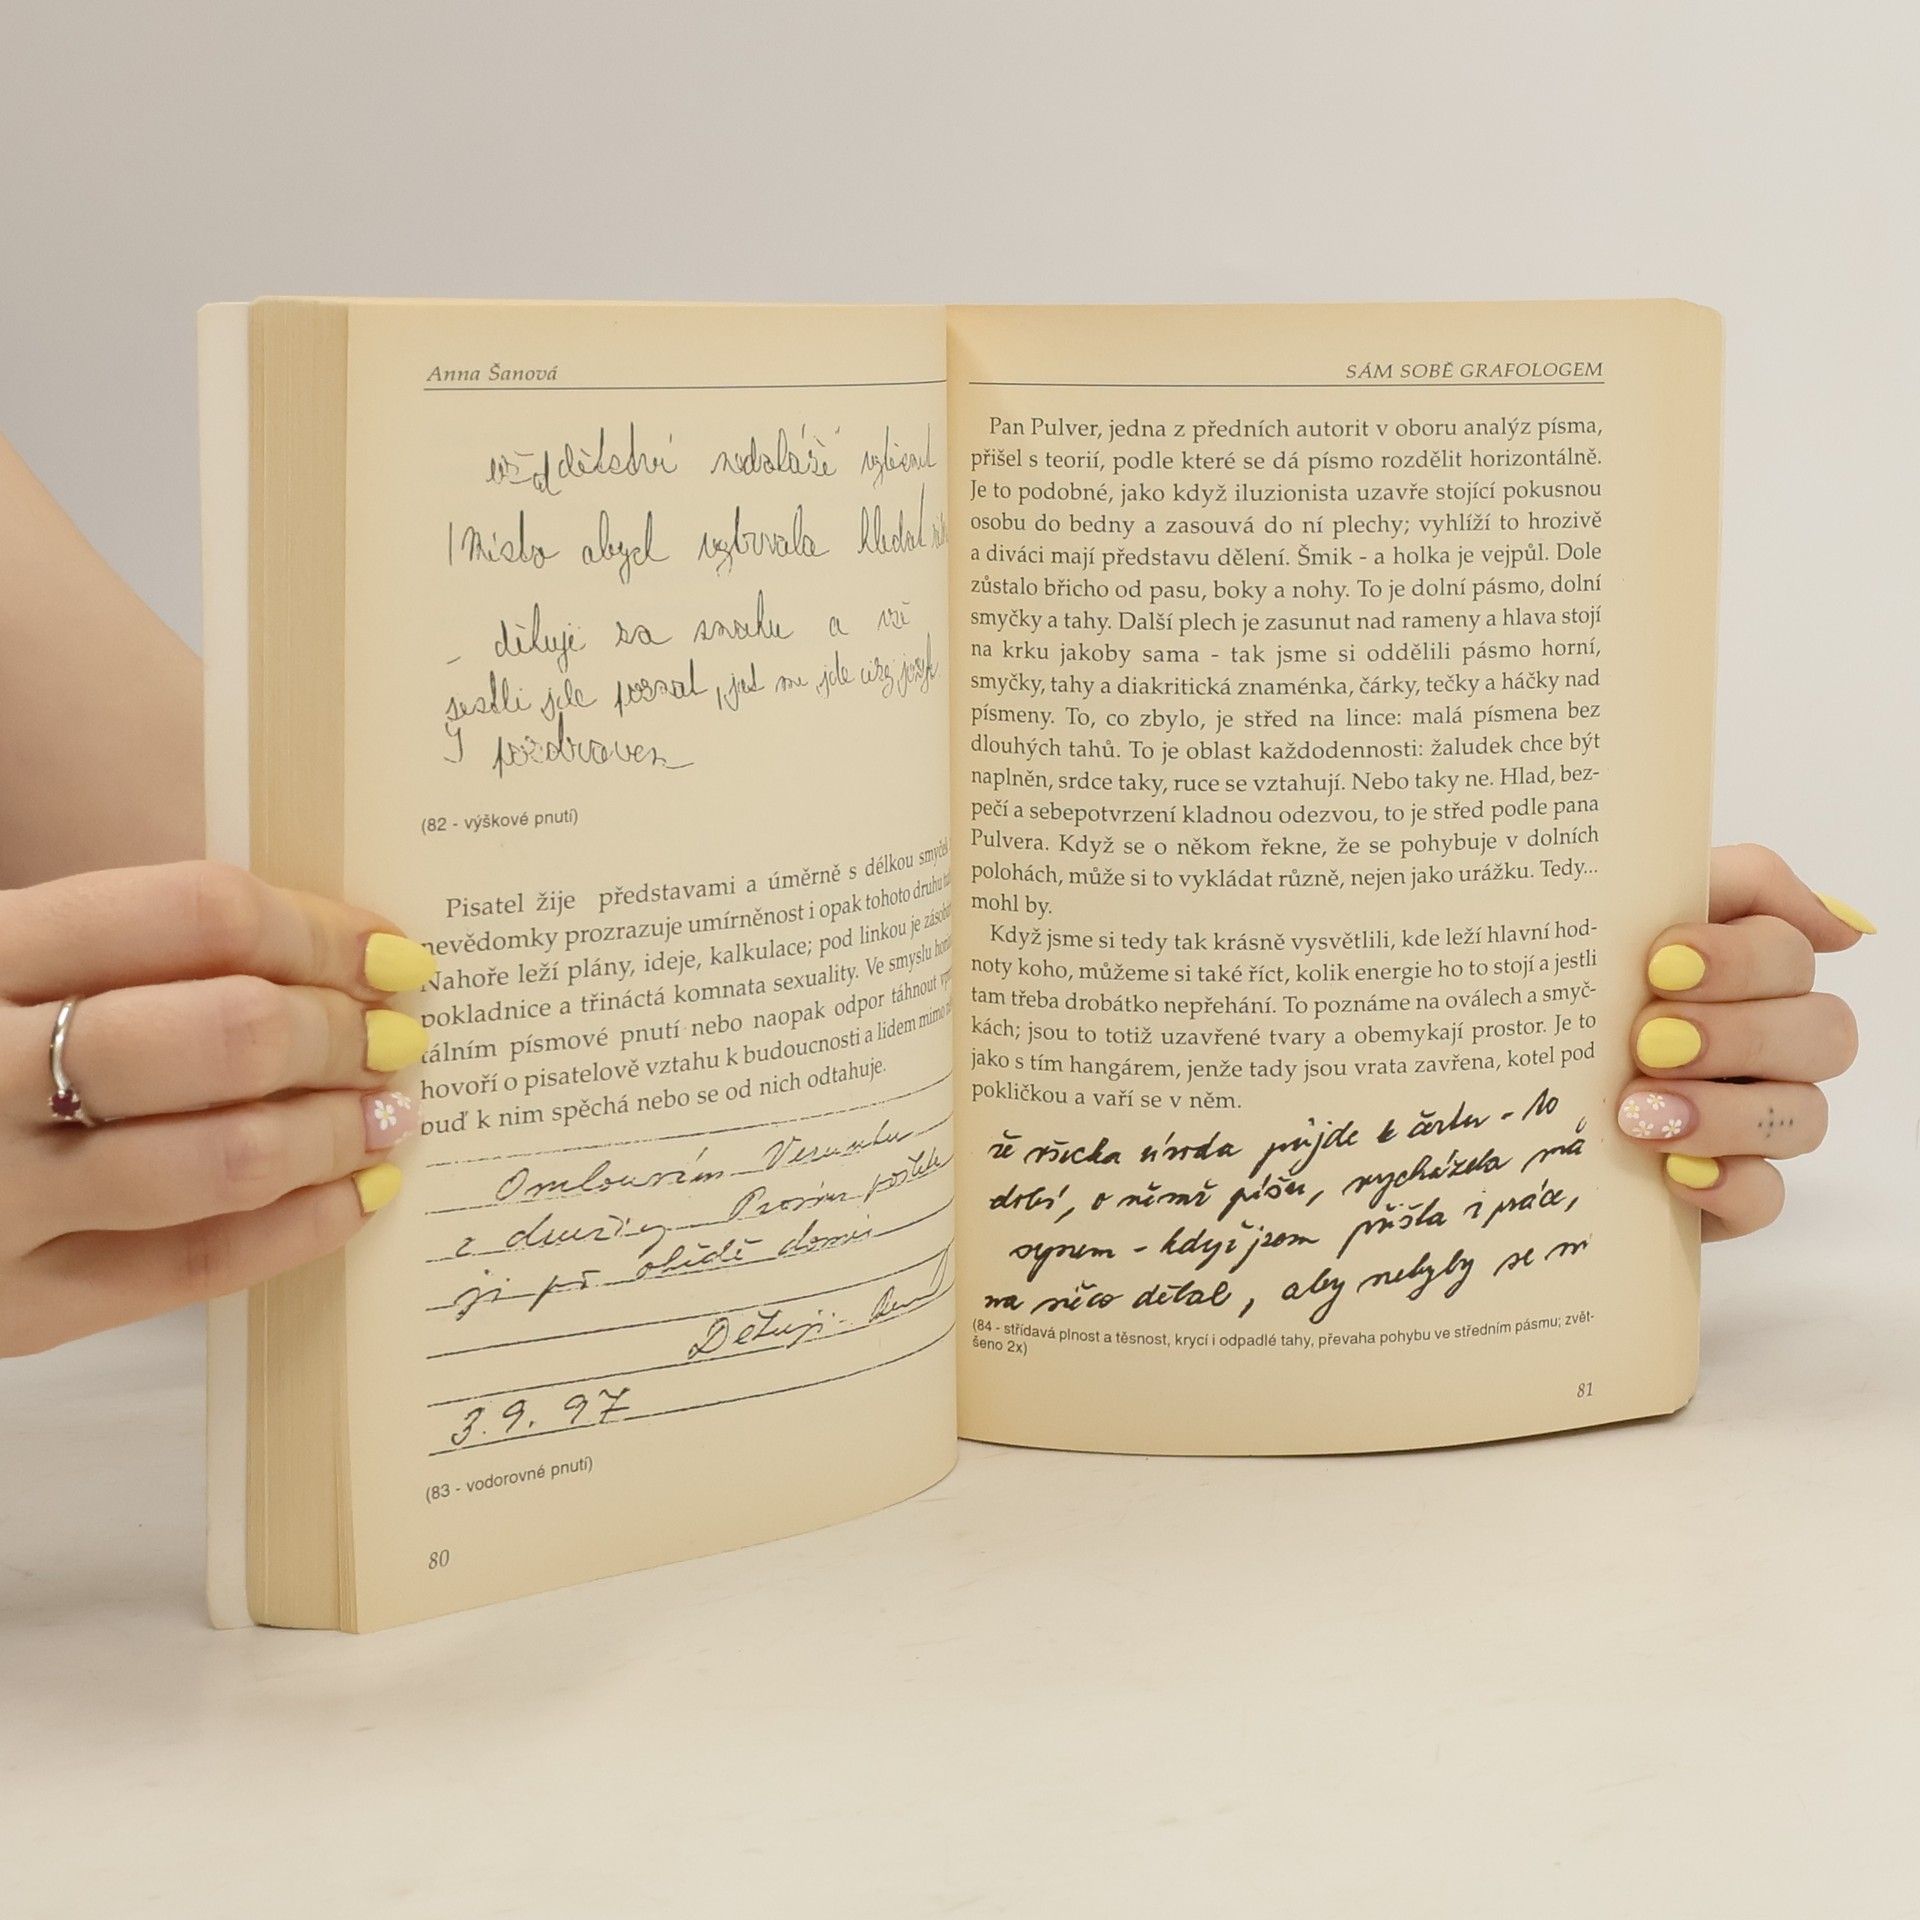 Anna Šanová
dětství
Místo abych hledat
děkuje za snahu a
jde poznat, jak mi jde cizí jazyk
pozdraven
(82 - výškové pnutí)
Pisatel žije představami a úměrně s délkou smyček
nevědomky prozrazuje umírněnost i opak tohoto druhu
Nahoře leží plány, ideje, kalkulace; pod linkou je
pokladnice a třináctá komnata sexuality. Ve smyslu
tálním písmové pnutí nebo naopak odpor táhnout
hovoří o pisatelově vztahu k budoucnosti a lidem mimo
buď k nim spěchá nebo se od nich odtahuje.
Omlouvám Veroniku
z družiny Prosím pošlete
ji po obědě domů
Děkuji
3. 9. 97
(83 - vodorovné pnutí)
80
SÁM SOBĚ GRAFOLOGEM
Pan Pulver, jedna z předních autorit v oboru analýz písma,
přišel s teorií, podle které se dá písmo rozdělit horizontálně.
Je to podobné, jako když iluzionista uzavře stojící pokusnou
osobu do bedny a zasouvá do ní plechy; vyhlíží to hrozivě
a diváci mají představu dělení. Šmik - a holka je vejpůl. Dole
zůstalo břicho od pasu, boky a nohy. To je dolní pásmo, dolní
smyčky a tahy. Další plech je zasunut nad rameny a hlava stojí
na krku jakoby sama - tak jsme si oddělili pásmo horní,
smyčky, tahy a diakritická znaménka, čárky, tečky a háčky nad
písmeny. To, co zbylo, je střed na lince: malá písmena bez
dlouhých tahů. To je oblast každodennosti: žaludek chce být
naplněn, srdce taky, ruce se vztahují. Nebo taky ne. Hlad, bez-
pečí a sebepotvrzení kladnou odezvou, to je střed podle pana
Pulvera. Když se o někom řekne, že se pohybuje v dolních
polohách, může si to vykládat různě, nejen jako urážku. Tedy...
mohl by.
Když jsme si tedy tak krásně vysvětlili, kde leží hlavní hod-
noty koho, můžeme si také říct, kolik energie ho to stojí a jestli
tam třeba drobátko nepřehání. To poznáme na oválech a smyč-
kách; jsou to totiž uzavřené tvary a obemykají prostor. Je to
jako s tím hangárem, jenže tady jsou vrata zavřena, kotel pod
pokličkou a vaří se v něm.
že všecka úroda půjde k čertu - to
době, o němž píšu, vycházela má
synem - když jsem přišla z práce,
na něco dělal, aby nebyby se mi
(84 - střídavá plnost a těsnost, krycí i odpadlé tahy, převaha pohybu ve středním pásmu; zvět-
šeno 2x)
81